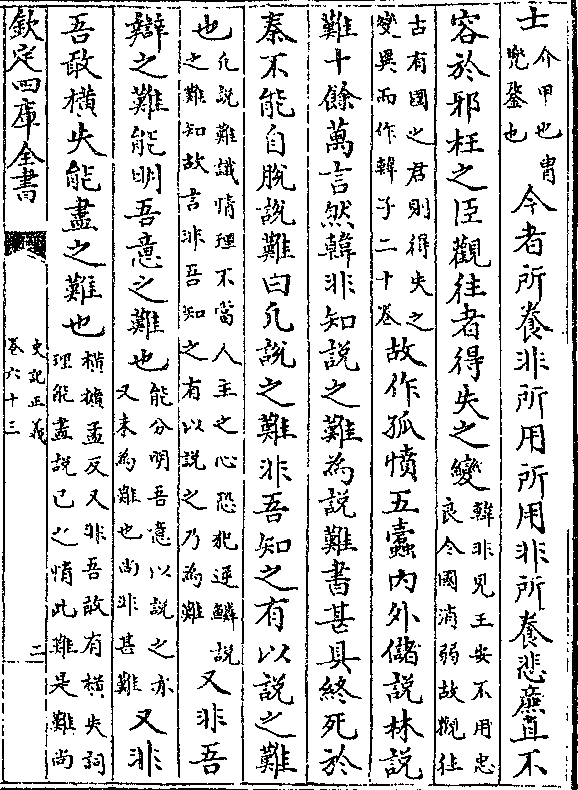 士介甲也胄兜鍪也今者所養非所用所用非所養悲廉直不
容於邪枉之臣觀往者得失之變韓非見王安不用忠良令國消弱故觀往
古有國之君則得失之變異而作韓子二十卷故作孤憤五蠹內外儲說林說
難十餘萬言然韓非知說之難為說難書甚具終死於
秦不能自脫說難曰凡說之難非吾知之有以說之難
也凡說難識情理不當人主之心恐犯逆鱗說之難知故言非吾知之有以說之乃為難又非吾
辯之難能明吾意之難也能分明吾意以說之亦又未為難也尚非甚難又非
吾敢橫失能盡之難也橫擴孟反又非吾敢有橫失詞理能盡說己之情此難是難尚
欽定四庫全書 史記正義 卷六十三 二